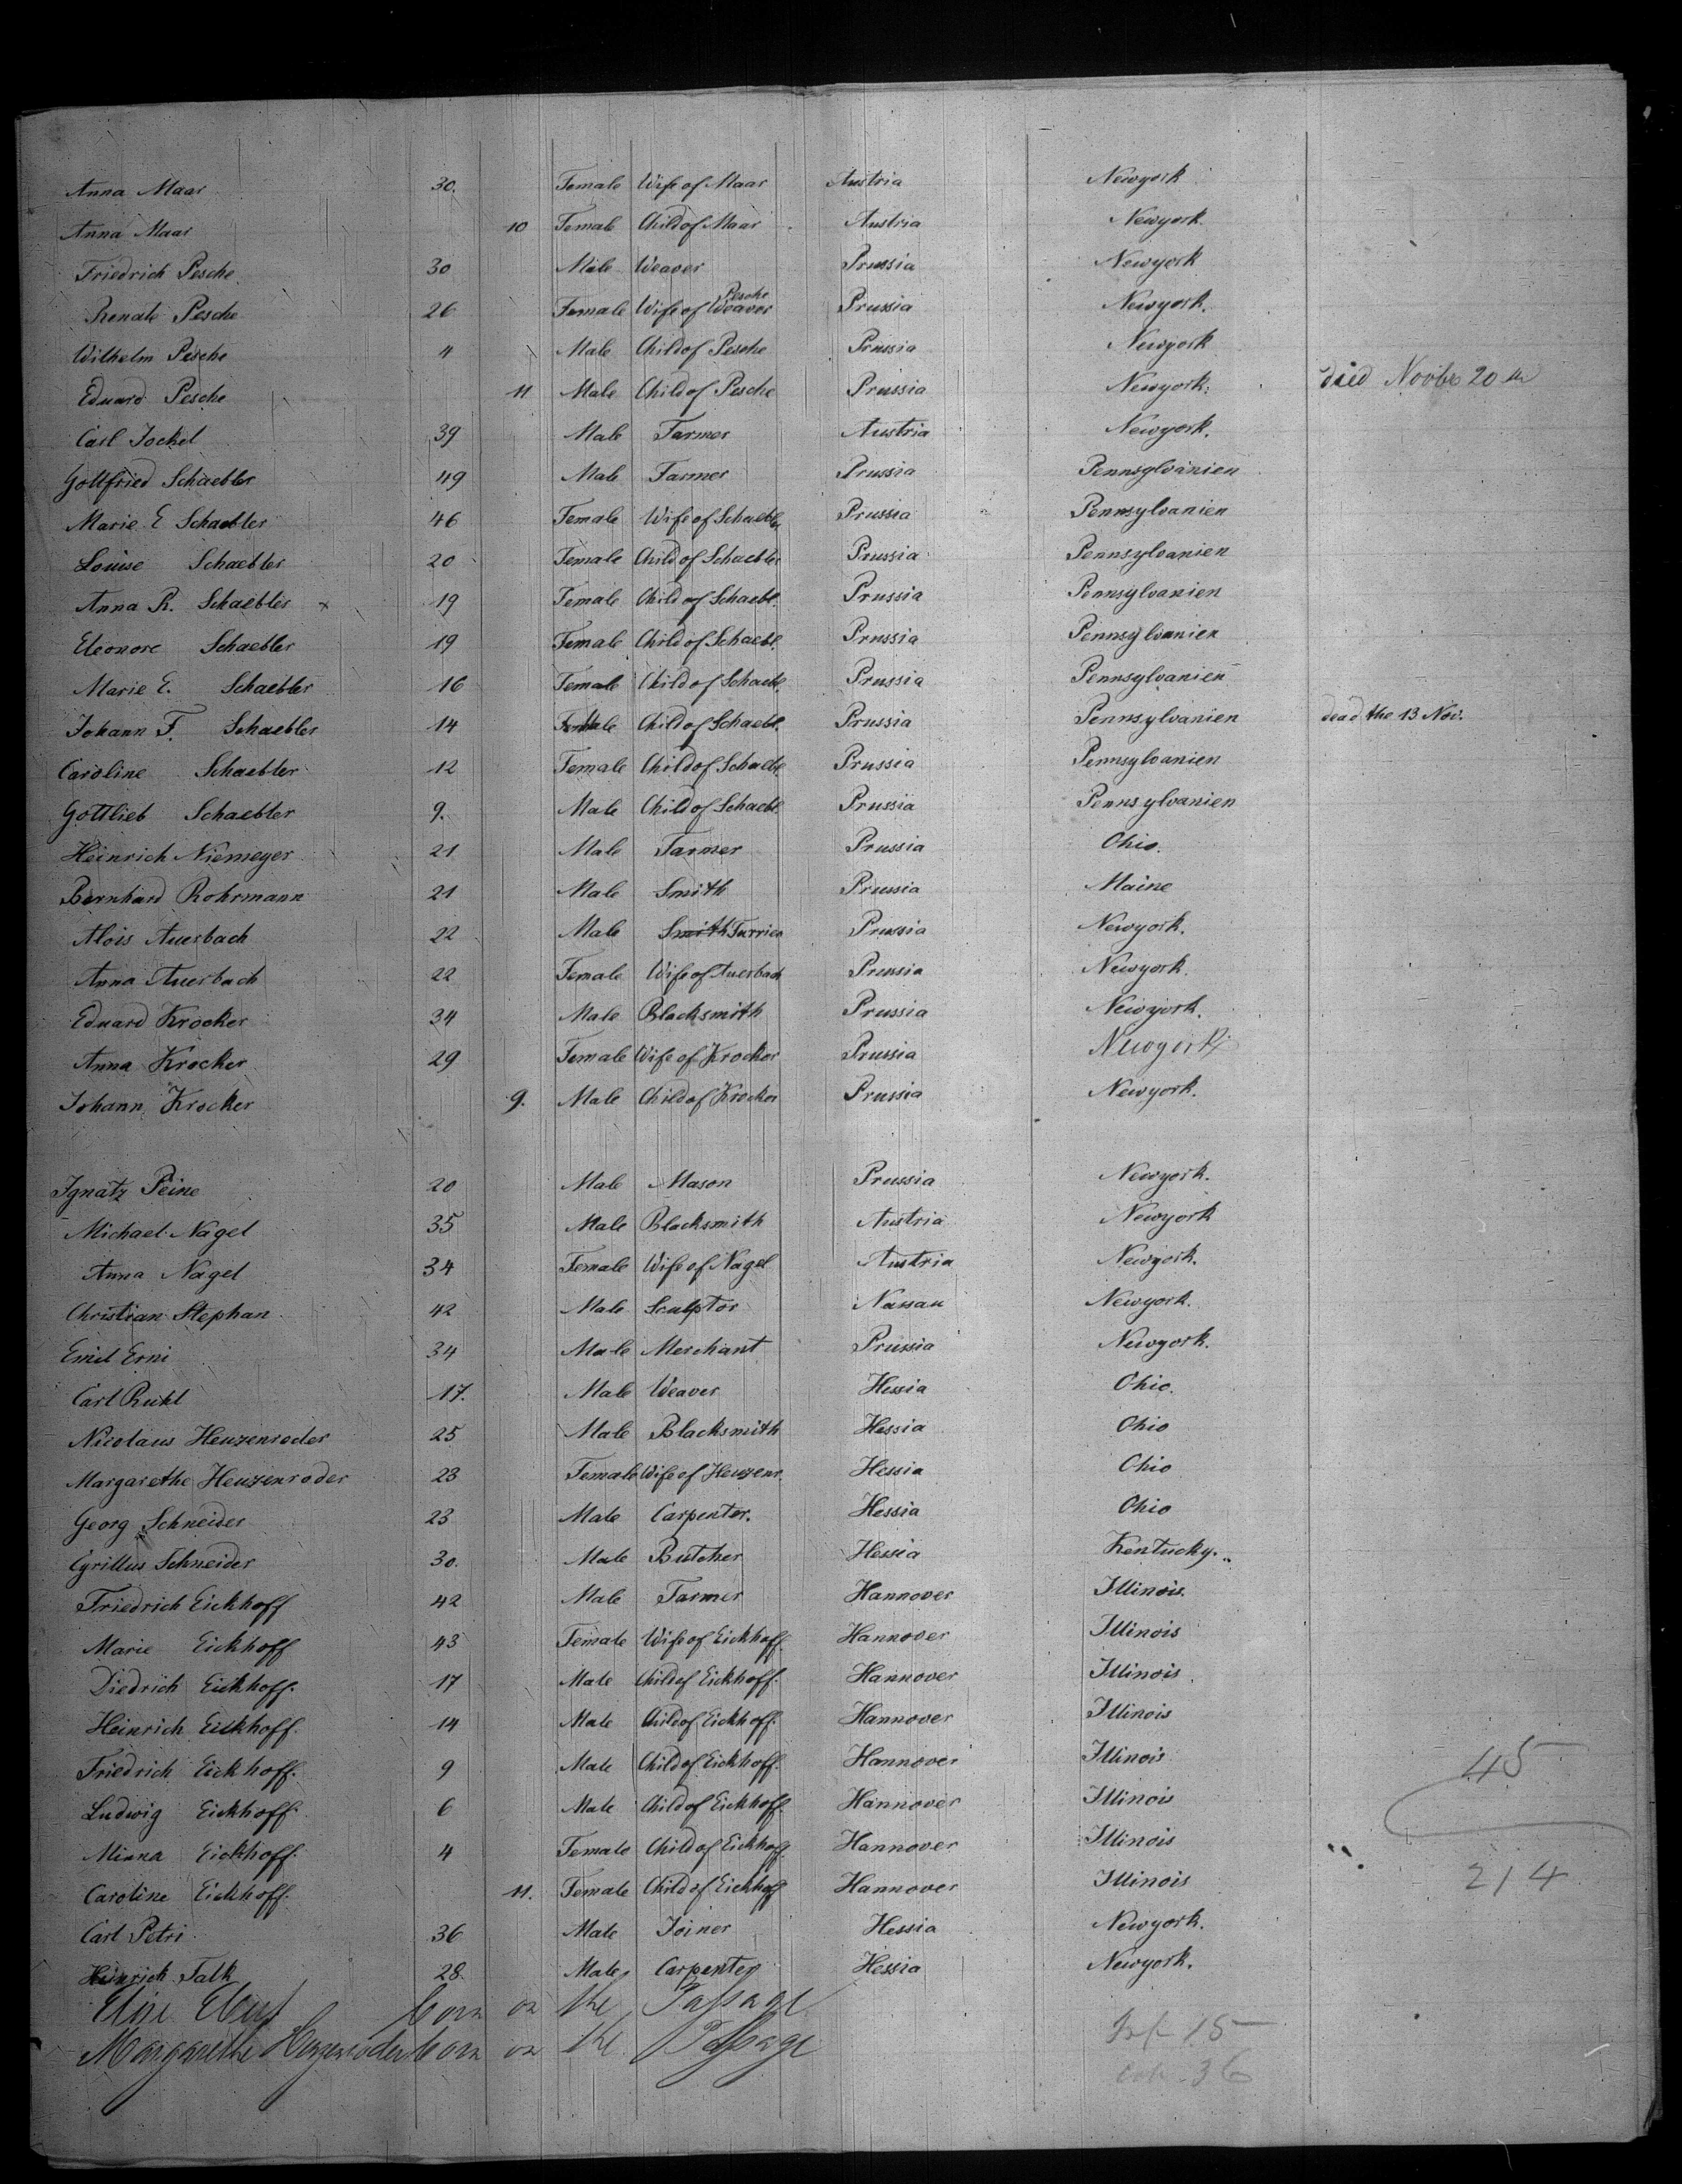 Anna Maar 30. Female Wife of Maar Austria Newyork
Anna Maar 10 Female Child of Maar Austria Newyork.
Friedrich Pesche 30 Male Weaver Prussia Newyork
Renate Pesche 26 Female Wife of Weaver Pesche Prussia Newyork.
Wilhelm Pesche 4 Male Child of Pesche Prussia Newyork
Eduard Pesche 11 Male Child of Pesche Prussia Newyork. died Novbr 20th
Carl Jockel 39 Male Farmer Austria Newyork.
Gottfried Schaebler 49 Male Farmer Prussia Pennsylvanien
Marie E Schaebler 46 Female Wife of Schaebler Prussia Pennsylvanien
Louise Schaebler 20 Female Child of Schaebler Prussia Pennsylvanien
Anna R. Schaebler x 19 Female Child of Schaebl. Prussia Pennsylvanien
Eleonore Schaebler 19 Female Child of Schaebl. Prussia Pennsylvanien
Marie E. Schaebler 16 Female Child of Schaebl. Prussia Pennsylvanien
Johann F. Schaebler 14 Male Child of Schaebl. Prussia Pennsylvanien dead the 13 Nov.
Caroline Schaebler 12 Female Child of Schaebl. Prussia Pennsylvanien
Gottlieb Schaebler 9. Male Child of Schaebl. Prussia Pennsylvanien
Heinrich Niemeyer 21 Male Farmer Prussia Ohio.
Bernhard Rohrmann 21 Male Smith Prussia Maine
Alois Auerbach 22 Male Smith Furrier Prussia Newyork.
Anna Auerbach 22 Female Wife of Auerbach Prussia Newyork.
Eduard Krocker 34 Male Blacksmith Prussia Newyork.
Anna Krocker 29 Female Wife of Krocker Prussia Newyork
Johann Krocker 9. Male Child of Krocker Prussia Newyork.
Ignatz Peine 20 Male Mason Prussia Newyork.
Michael Nagel 35 Male Blacksmith Austria Newyork
Anna Nagel 34 Female Wife of Nagel Austria Newyork.
Christian Stephan 42 Male Sculptor Nassau Newyork.
Emil Erni 34 Male Merchant Prussia Newyork.
Carl Ruhl 17. Male Weaver Hessia Ohio.
Nicolaus Heuzenroder 25 Male Blacksmith Hessia Ohio
Margarethe Heuzenroder 23 Female Wife of Heuzenr. Hessia Ohio
Georg Schneider 23 Male Carpenter. Hessia Ohio
Cyrillus Schneider 30. Male Butcher Hessia Kentucky.
Friedrich Eickhoff 42 Male Farmer Hannover Illinois.
Marie Eickhoff 43 Female Wife of Eickhoff. Hannover Illinois
Diedrich Eickhoff. 17 Male Child of Eickhoff. Hannover Illinois
Heinrich Eickhoff. 14 Male Child of Eickhoff. Hannover Illinois
Friedrich Eickhoff. 9 Male Child of Eickhoff. Hannover Illinois
45
Ludwig Eickhoff. 6 Male Child of Eickhoff. Hannover Illinois
Minna Eickhoff. 4 Female Child of Eickhoff. Hannover Illinois
Caroline Eickhoff. 11. Female Child of Eickhoff Hannover Illinois
214
Carl Petri 36 Male Joiner Hessia Newyork.
Heinrich Falk 28. Male Carpenter Hessia Newyork.
Elise born on the Passage
Margarethe Heuzenroder born on the Passage
Inf 15
36